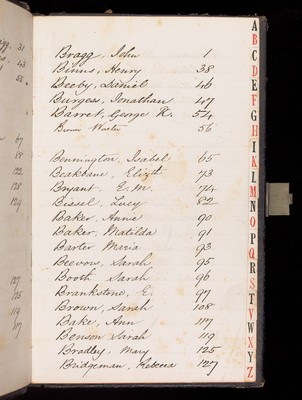 Bragg, John 1
Binns, Henry 38
Beeby, Daniel 46
Burgess, Jonathan 47
Barret, George R. 54
Brown Walter 56
Bennington, Isabel 65
Beaklane, Elizth 73
Bryant, E. M. 74
Bissel, Lucy 82
Baker, Annie 90
Baker, Matilda 91
Barter Maria 93
Beevors, Sarah 95
Booth Sarah 96
Brankstone, E. 97
Brown, Sarah 108
Bake, Ann 117
Benson Sarah 119
Bradley, Mary 125
Bridgeman, Rebecca 127
A
B
C
D
E
F
G
H
I
K
L
M
N
O
P
Q
R
S
T
V
W
X
Y
Z
31
43
58
67
68
122
128
129
127
125
119
117